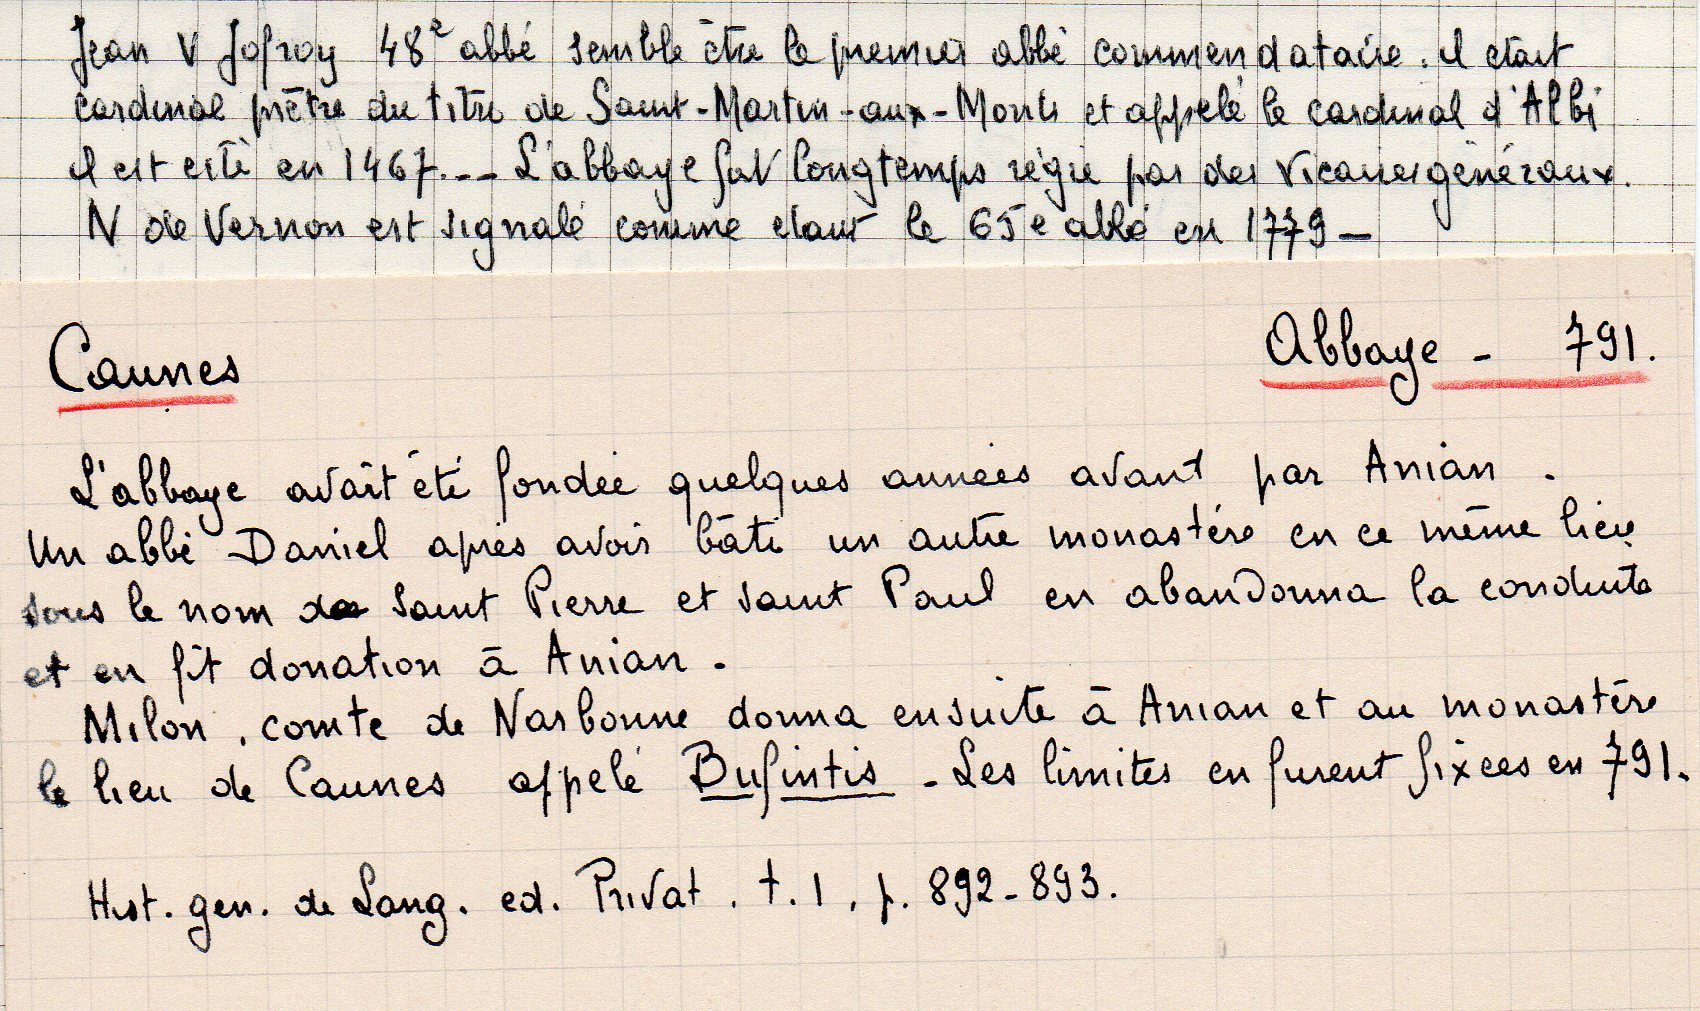 Jean V Jofroy 48e abbé semble être le premier abbé commendataire. il était
cardinal prêtre du titre de Saint-Martin-aux-Monts et appelé le cardinal d'Albi
il est cité en 1467.-- L'abbaye fut longtemps régie par des vicaires généraux.
N de Vernon est signalé comme etant le 65e abbé en 1779 -
Caunes
Abbaye - 791.
L'abbaye avait été fondée quelques années avant par Anian.
Un abbé Daniel après avoir bâti un autre monastère en ce même lieu
sous le nom de Saint Pierre et Saint Paul en abandonna la conduite
et en fit donation à Anian.
Milon, comte de Narbonne donna ensuite à Anian et au monastère
le lieu de Caunes appelé Bufintis - Les limites en furent fixées en 791.
Hist. gen. de Lang. ed. Privat. t. 1, p. 892-893.